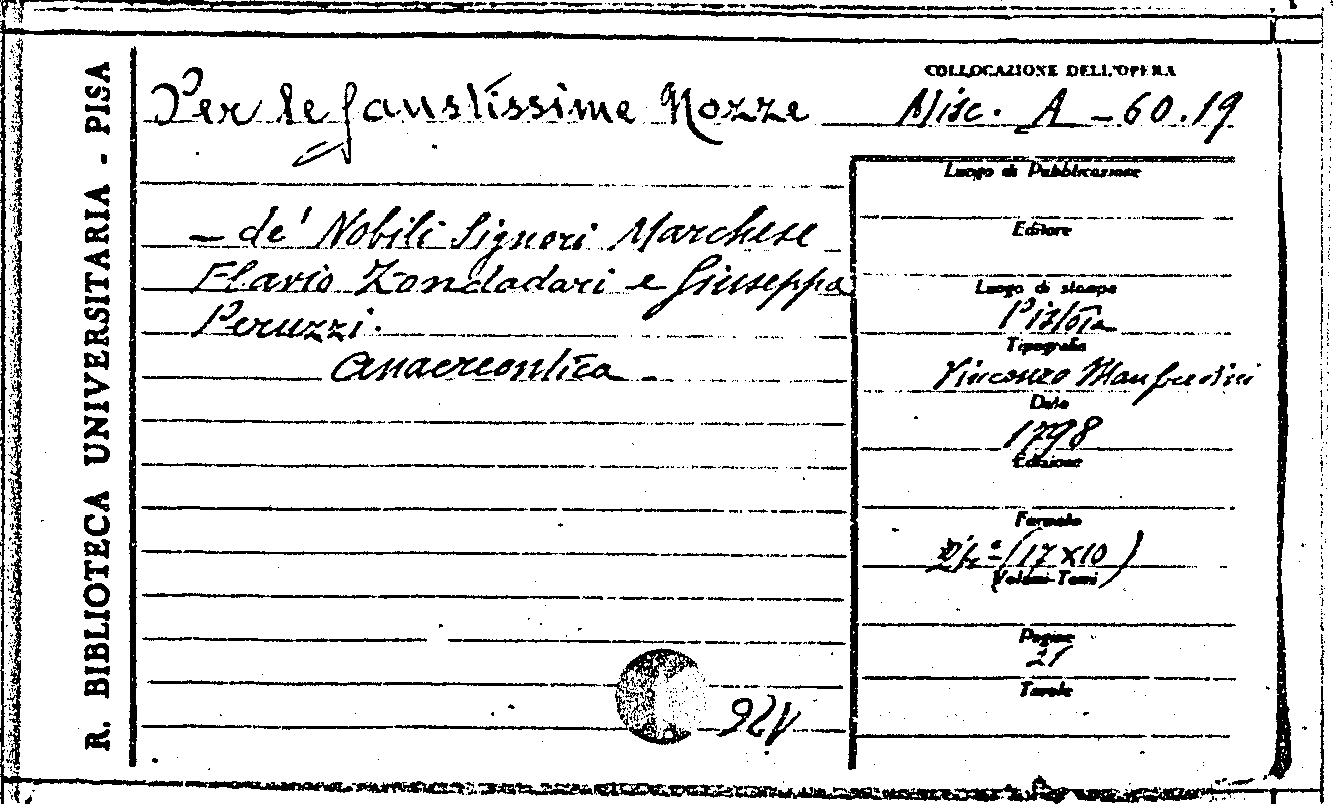 R. BIBLIOTECA UNIVERSITARIA - PISA
Per le faustissime Nozze
- de' Nobili Signori Marchese
Flavio Zondadari e Giuseppa
Peruzzi.
Anacreontica.
COLLOCAZIONE DELL'OPERA
Misc. A - 60.19
Luogo di Pubblicazione
Editore
Luogo di stampa
Pistoia
Tipografia
Vincenzo Manfredini
Data
1798
Edizione
Formato
(17 x 10)
Volumi-Tomi
Pagine
21
Tavole